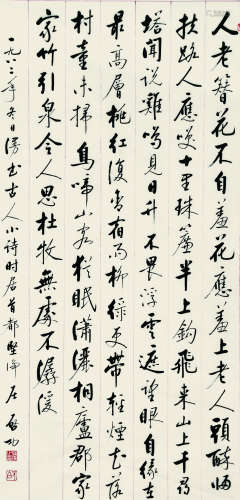 人老簪花不自羞花應羞上老人頭醉歸
扶路人應笑十里珠簾半上鉤飛來山上千尋
塔聞說雞鳴見日升不畏浮雲遮望眼自緣身在
最高層桃紅復含宿雨柳綠更帶輕煙花落
村童未掃鳥啼山客猶眠瀟灑桐廬郡家
家竹引泉令人思杜牧無處不潺湲
一九八二年冬日漫書古人小詩時居首都堅淨居 啟功